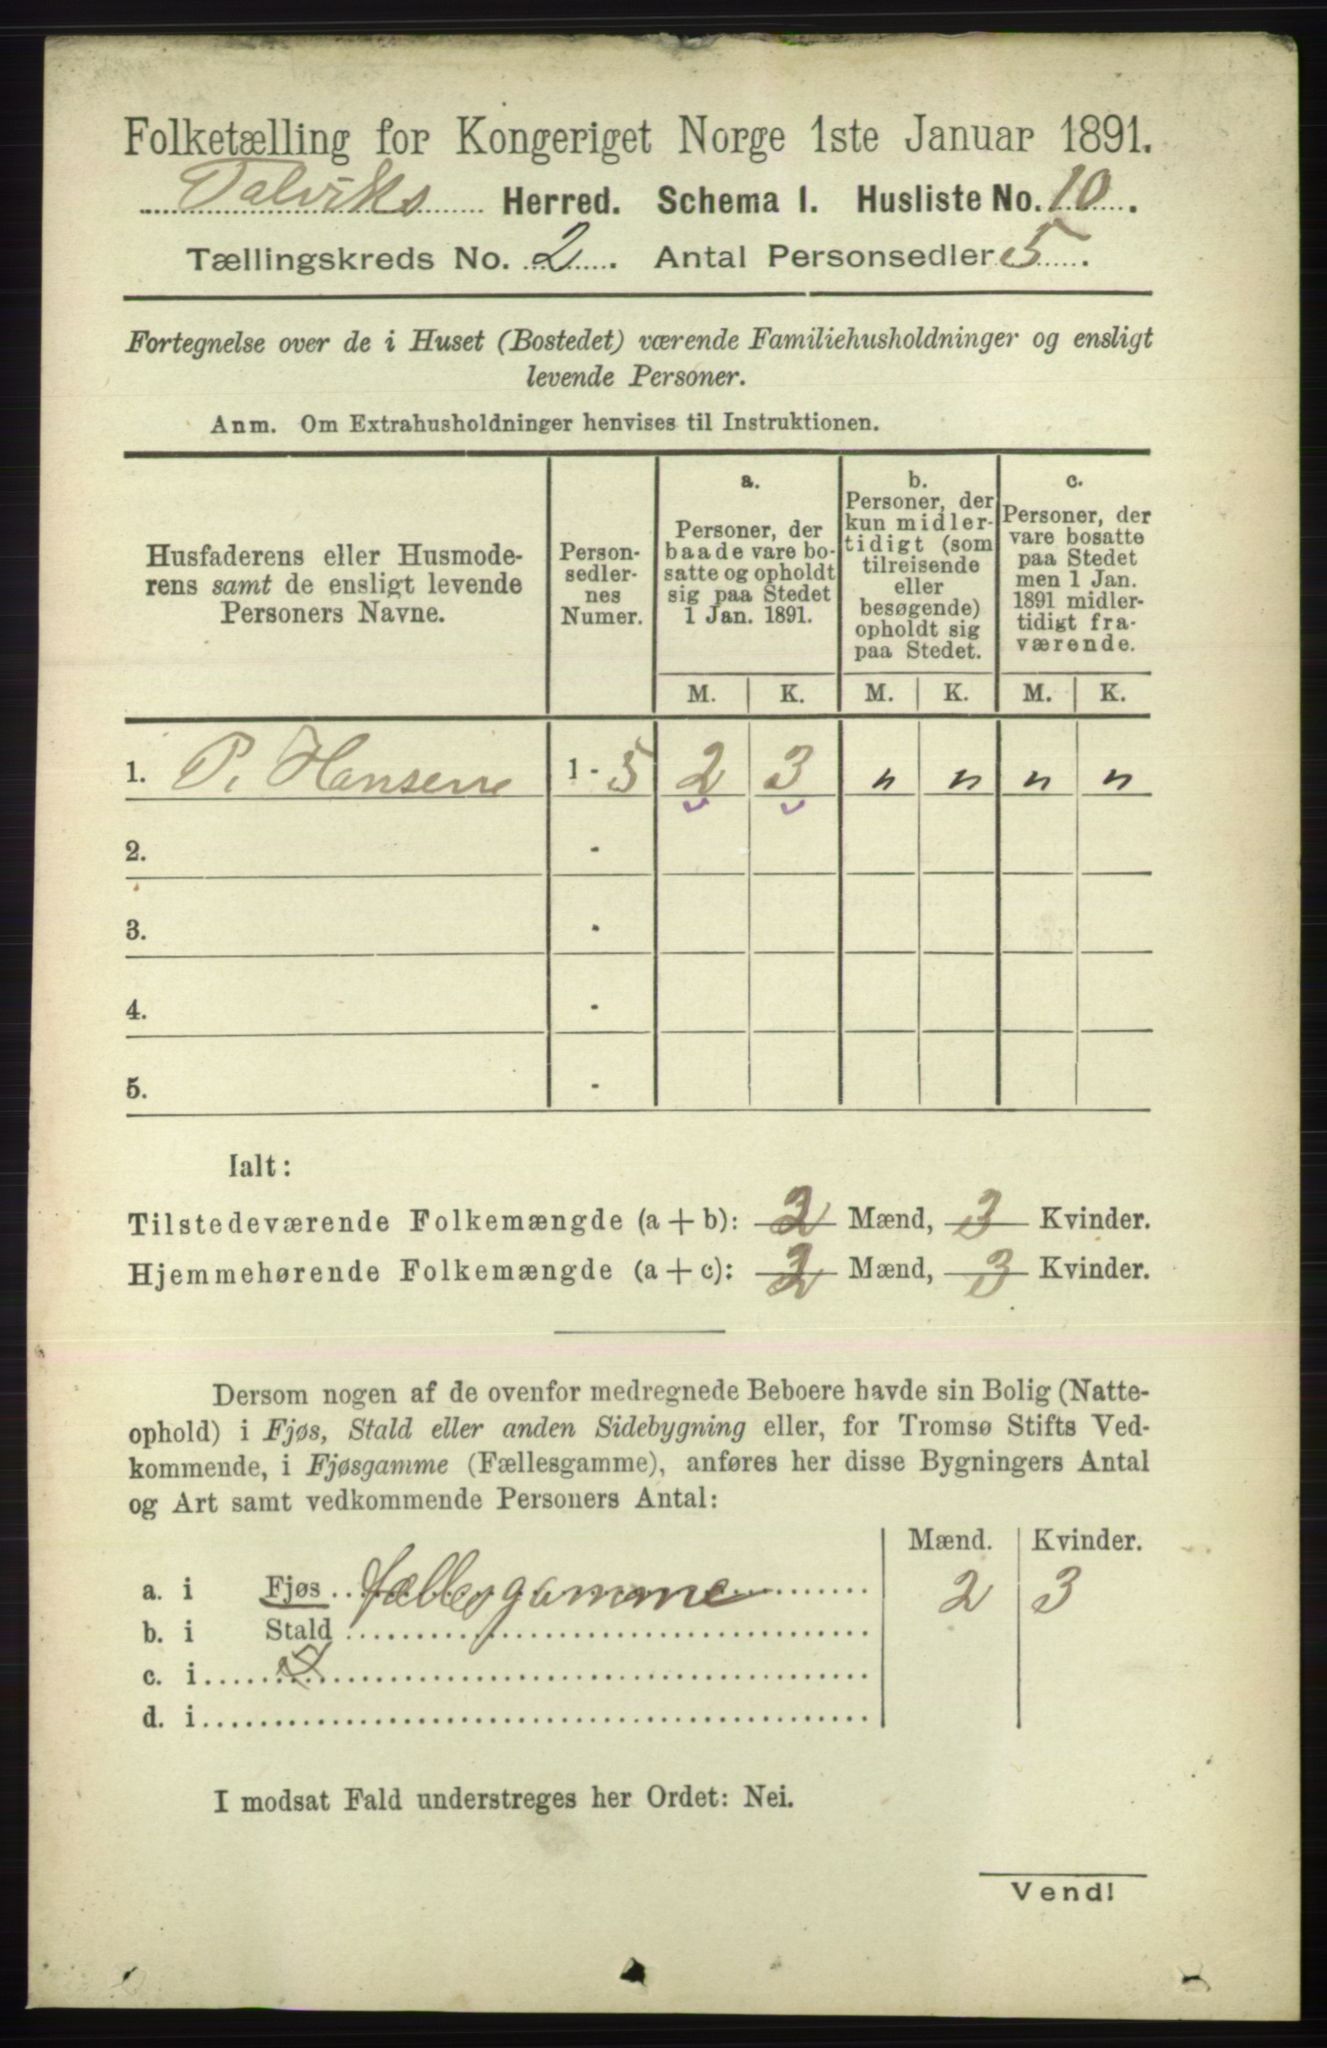 Folketælling for Kongeriget Norge 1ste Januar 1891.
Talviks Herred. Schema I. Husliste No. 10.
Tællingskreds No. 2. Antal Personsedler 5.
Fortegnelse over de i Huset (Bostedet) værende Familiehusholdninger og ensligt
levende Personer.
Anm. Om Extrahusholdninger henvises til Instruktionen.
Husfaderens eller Husmode-
rens samt de ensligt levende
Personers Navne.
Person-
sedler-
nes
Numer.
a.
Personer, der
baade vare bo-
satte og opholdt
sig paa Stedet
1 Jan. 1891.
b.
Personer, der
kun midler-
tidigt (som
tilreisende
eller
besøgende)
opholdt sig
paa Stedet.
c.
Personer, der
vare bosatte
paa Stedet
men 1 Jan.
1891 midler-
tidigt fra-
værende.
M. K. M. K. M. K.
1. P. Hansen 1 - 5 2 3 " " " "
2. -
3. -
4. -
5. -
Ialt:
Tilstedeværende Folkemængde (a + b): 2 Mænd, 3 Kvinder.
Hjemmehørende Folkemængde (a + c): 2 Mænd, 3 Kvinder.
Dersom nogen af de ovenfor medregnede Beboere havde sin Bolig (Natte-
ophold) i Fjøs, Stald eller anden Sidebygning eller, for Tromsø Stifts Ved-
kommende, i Fjøsgamme (Fællesgamme), anføres her disse Bygningers Antal
og Art samt vedkommende Personers Antal:
Mænd. Kvinder.
a. i Fjøs fællesgamme 2 3
b. i Stald
c. i
d. i
I modsat Fald understreges her Ordet: Nei.
Vend!